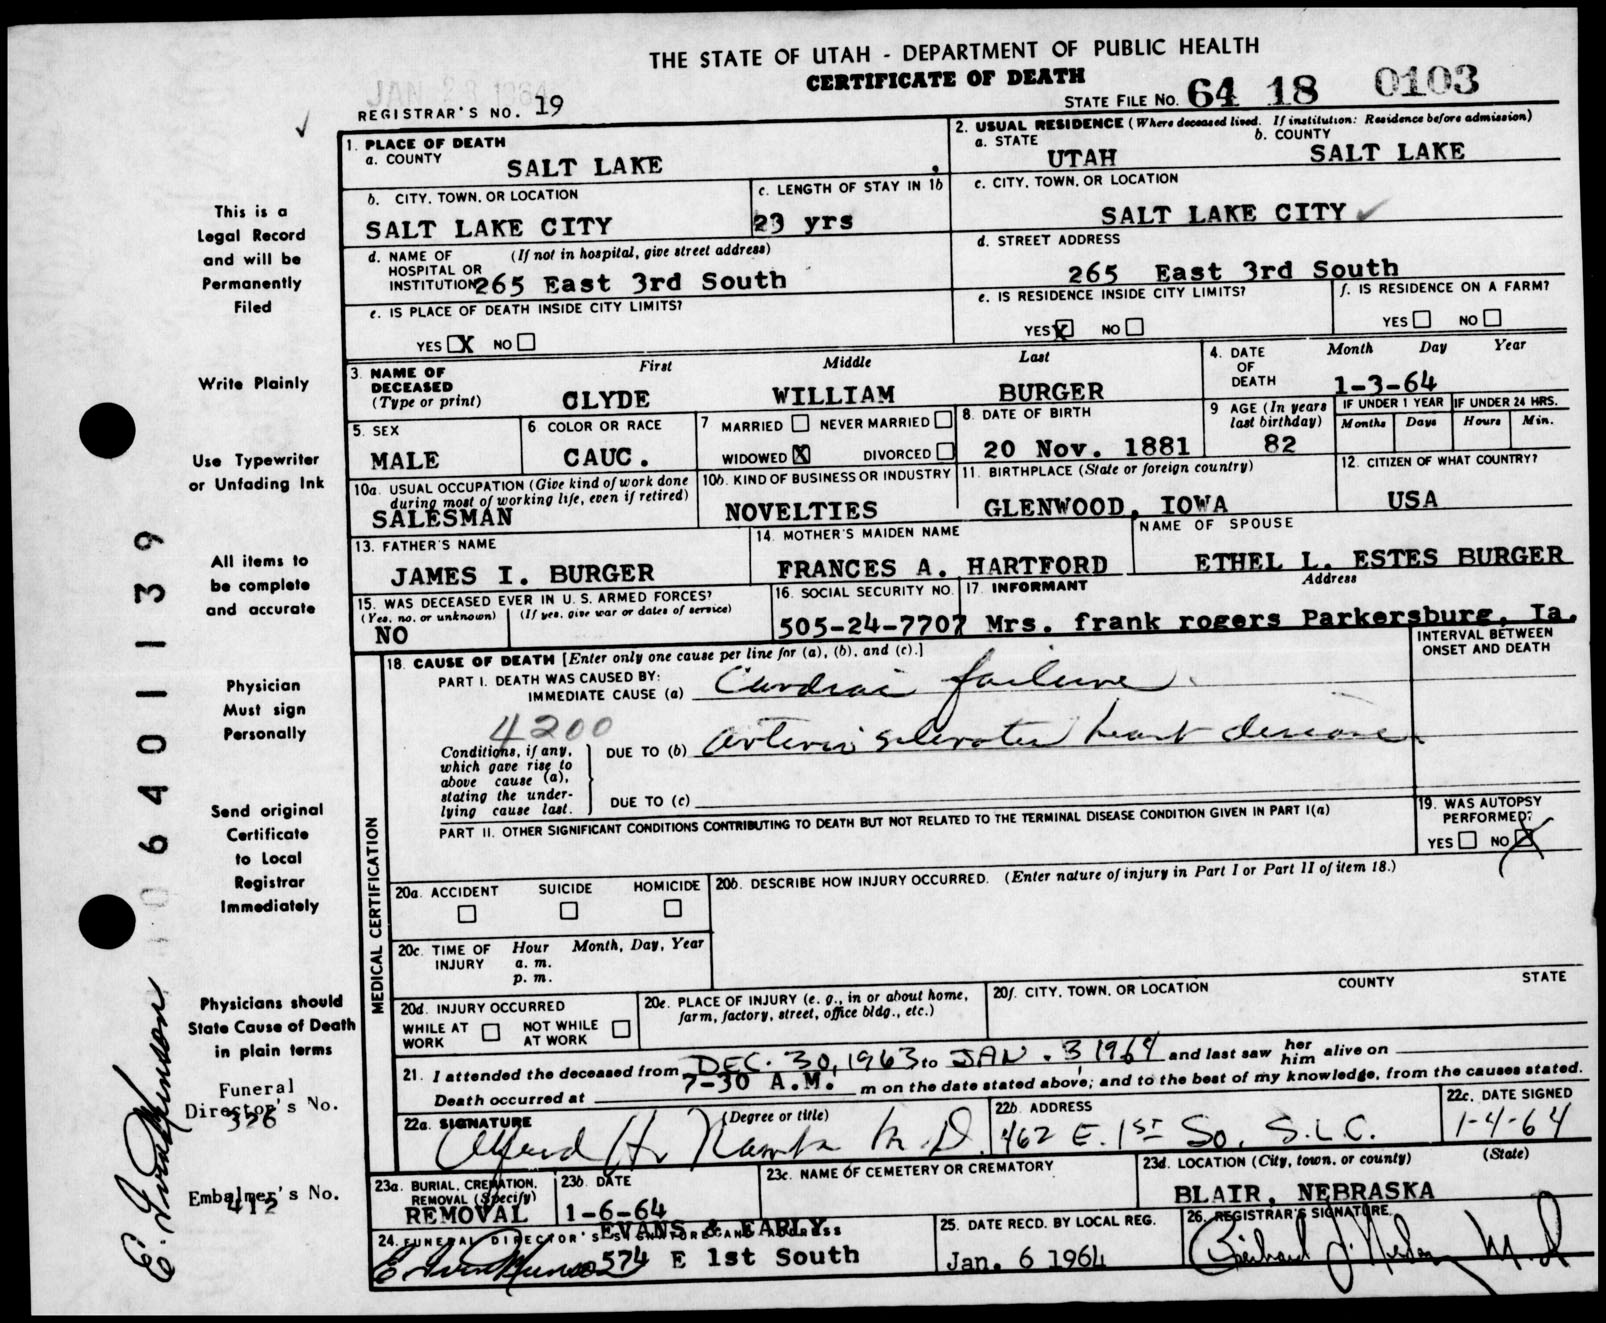 THE STATE OF UTAH - DEPARTMENT OF PUBLIC HEALTH
CERTIFICATE OF DEATH
JAN 1964
REGISTRAR'S NO. 19
STATE FILE NO. 64 18 0103
1. PLACE OF DEATH
a. COUNTY
SALT LAKE
2. USUAL RESIDENCE (Where deceased lived. If institution: Residence before admission)
a. STATE
UTAH
b. COUNTY
SALT LAKE
b. CITY, TOWN, OR LOCATION
SALT LAKE CITY
c. LENGTH OF STAY IN 1b
23 yrs
c. CITY, TOWN, OR LOCATION
SALT LAKE CITY
d. NAME OF HOSPITAL OR INSTITUTION
(If not in hospital, give street address)
265 East 3rd South
d. STREET ADDRESS
265 East 3rd South
e. IS PLACE OF DEATH INSIDE CITY LIMITS?
YES X NO
e. IS RESIDENCE INSIDE CITY LIMITS?
YES X NO
f. IS RESIDENCE ON A FARM?
YES NO
3. NAME OF DECEASED (Type or print)
First Middle Last
CLYDE WILLIAM BURGER
4. DATE OF DEATH
Month Day Year
1-3-64
5. SEX
MALE
6. COLOR OR RACE
CAUC.
7 MARRIED NEVER MARRIED
WIDOWED X DIVORCED
8. DATE OF BIRTH
20 Nov. 1881
9 AGE (In years last birthday)
82
IF UNDER 1 YEAR
Months Days
IF UNDER 24 HRS.
Hours Min.
10a. USUAL OCCUPATION (Give kind of work done during most of working life, even if retired)
SALESMAN
10b. KIND OF BUSINESS OR INDUSTRY
NOVELTIES
11. BIRTHPLACE (State or foreign country)
GLENWOOD, IOWA
12. CITIZEN OF WHAT COUNTRY?
USA
13. FATHER'S NAME
JAMES I. BURGER
14. MOTHER'S MAIDEN NAME
FRANCES A. HARTFORD
NAME OF SPOUSE
ETHEL L. ESTES BURGER
15. WAS DECEASED EVER IN U. S. ARMED FORCES?
(Yes, no, or unknown) (If yes, give war or dates of service)
NO
16. SOCIAL SECURITY NO.
505-24-7707
17. INFORMANT Address
Mrs. frank rogers Parkersburg, Ia.
MEDICAL CERTIFICATION
18. CAUSE OF DEATH [Enter only one cause per line for (a), (b), and (c).]
INTERVAL BETWEEN ONSET AND DEATH
PART I. DEATH WAS CAUSED BY:
IMMEDIATE CAUSE (a) Cardiac failure
4200
Conditions, if any, which gave rise to above cause (a), stating the underlying cause last.
DUE TO (b) arterio sclerotic heart disease
DUE TO (c)
PART II. OTHER SIGNIFICANT CONDITIONS CONTRIBUTING TO DEATH BUT NOT RELATED TO THE TERMINAL DISEASE CONDITION GIVEN IN PART I(a)
19. WAS AUTOPSY PERFORMED?
YES NO X
20a. ACCIDENT SUICIDE HOMICIDE
20b. DESCRIBE HOW INJURY OCCURRED. (Enter nature of injury in Part I or Part II of item 18.)
20c. TIME OF INJURY
Hour Month, Day, Year
a. m.
p. m.
20d. INJURY OCCURRED
WHILE AT WORK NOT WHILE AT WORK
20e. PLACE OF INJURY (e. g., in or about home, farm, factory, street, office bldg., etc.)
20f. CITY, TOWN, OR LOCATION COUNTY STATE
21. I attended the deceased from DEC. 30, 1963 to JAN. 3 1964 and last saw her him alive on
Death occurred at 7-30 A.M. m on the date stated above; and to the best of my knowledge, from the causes stated.
22a. SIGNATURE (Degree or title)
Alfred H. M.D.
22b. ADDRESS
462 E. 1st So. S.L.C.
22c. DATE SIGNED
1-4-64
23a. BURIAL, CREMATION, REMOVAL (Specify)
REMOVAL
23b. DATE
1-6-64
23c. NAME OF CEMETERY OR CREMATORY
23d. LOCATION (City, town, or county) (State)
BLAIR, NEBRASKA
24. FUNERAL DIRECTOR'S SIGNATURE AND ADDRESS
EVANS & EARLY
574 E 1st South
25. DATE RECD. BY LOCAL REG.
Jan. 6 1964
26. REGISTRAR'S SIGNATURE
This is a
Legal Record
and will be
Permanently
Filed
Write Plainly
Use Typewriter
or Unfading Ink
All items to
be complete
and accurate
Physician
Must sign
Personally
Send original
Certificate
to Local
Registrar
Immediately
Physicians should
State Cause of Death
in plain terms
Funeral
Director's No.
326
Embalmer's No.
412
06401139